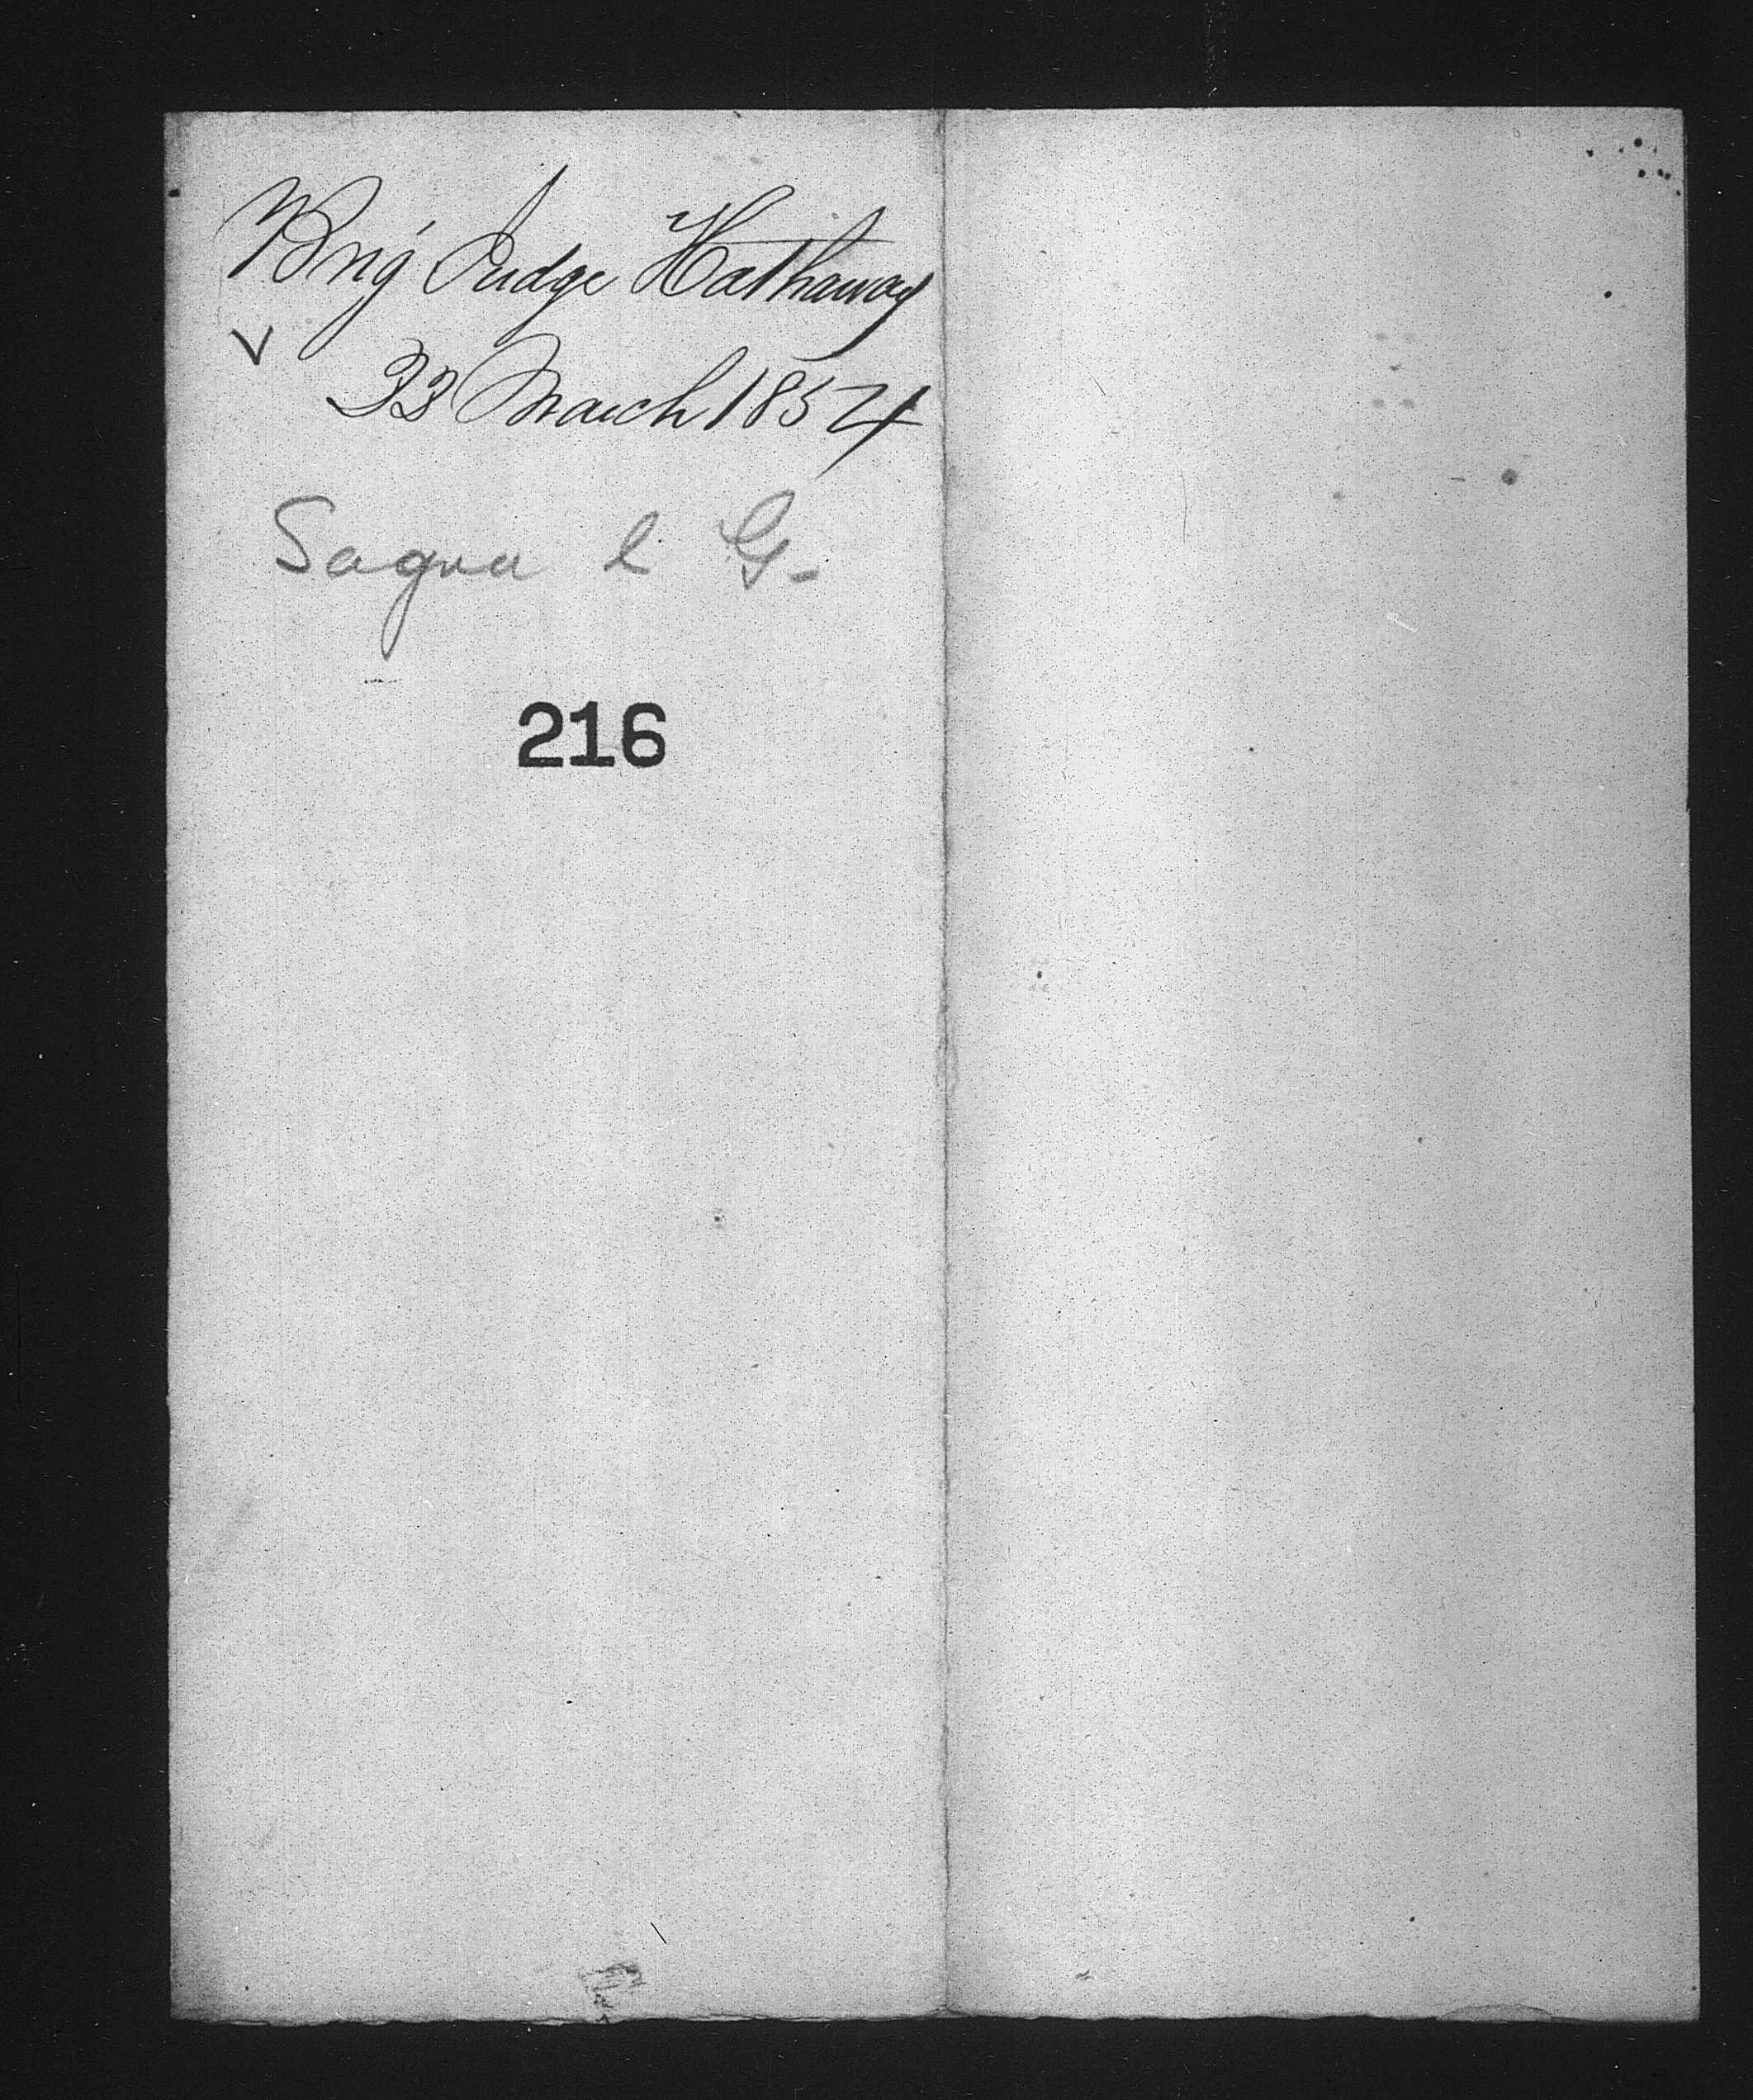 Brig Judge Hathaway
✓ 23 March 1854
Sagua l G-
216